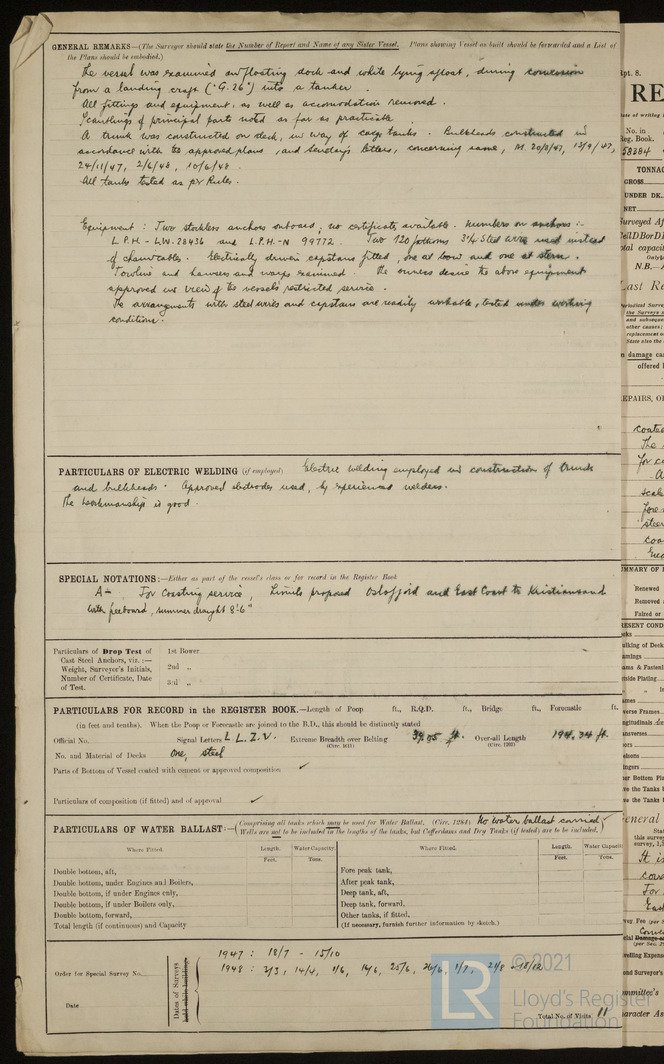 GENERAL REMARKS—(The Surveyor should state the Number of Report and Name of any Sister Vessel. Plans showing Vessel as built should be forwarded and a List of
the Plans should be embodied.)
The vessel was examined in floating dock and while lying afloat, during conversion
from a landing craft ("G.26") into a tanker.
All fittings and equipment, as well as accomodation removed.
Scantlings of principal parts noted as far as practicable
A trunk was constructed on deck, in way of cargo tanks. Bulkheads constructed in
accordance with the approved plans, and Secretary's letters, concerning same, M. 20/8/47, 13/9/47,
24/11/47, 2/6/48, 10/6/48.
All tanks tested as per Rules.
Equipment: Two stockless anchors onboard, no certificate available. Numbers on anchors:-
L.P.H - L.W. 28436 and L.P.H-N 99772. Two 120 fathoms 3¼ steel wires used instead
of chaincables. Electrically driven capstans fitted, one at bow and one at stern.
Towline and hawsers and warps examined. The owners desire the above equipment
approved in view of the vessel's restricted service.
The arrangements with steel wires and capstans are readily workable, tested under working
conditions.
PARTICULARS OF ELECTRIC WELDING (if employed) Electric welding employed in construction of trunk
and bulkheads. Approved electrodes used, by experienced welders.
The workmanship is good.
SPECIAL NOTATIONS:—Either as part of the vessel's class or for record in the Register Book
A- For Coasting service, Limits proposed Oslofjord and East Coast to Kristiansand
with freeboard, summer draught 8'6"
Particulars of Drop Test of
Cast Steel Anchors, viz.:—
Weight, Surveyor's Initials,
Number of Certificate, Date
of Test.
1st Bower
2nd „
3rd „
PARTICULARS FOR RECORD in the REGISTER BOOK.—Length of Poop ft., R.Q.D. ft., Bridge ft., Forecastle ft.
(in feet and tenths). When the Poop or Forecastle are joined to the B.D., this should be distinctly stated
Official No. Signal Letters L.L.Z.V. Extreme Breadth over Belting ft. Over-all Length 194.34 ft.
(Circ. 1611) (Circ. 1202)
No. and Material of Decks one, steel
Parts of Bottom of Vessel coated with cement or approved composition ✓
Particulars of composition (if fitted) and of approval ✓
PARTICULARS OF WATER BALLAST:—(Comprising all tanks which may be used for Water Ballast. (Circ. 1284) No water ballast carried
Wells are not to be included in the lengths of the tanks, but Cofferdams and Dry Tanks (if tested) are to be included.)
Where Fitted. Length. Water Capacity. Where Fitted. Length. Water Capacity
Feet. Tons. Feet. Tons.
Double bottom, aft, Fore peak tank,
Double bottom, under Engines and Boilers, After peak tank,
Double bottom, if under Engines only, Deep tank, aft,
Double bottom, if under Boilers only, Deep tank, forward,
Double bottom, forward, Other tanks, if fitted,
Total length (if continuous) and Capacity (If necessary, furnish further information by sketch.)
Order for Special Survey No.
Date
Dates of Surveys
held while building
1947: 18/7 - 15/10
1948: 2/3, 14/4, 1/6, 14/6, 25/6, 26/6, 1/7, 21/8 - 18/12
Total No. of Visits 11
LR
© 2021
Lloyd's Register
Foundation
pt. 8.
RE
No. in
Reg. Book.
58384
TONNAG
GROSS
UNDER DK.
NET
Surveyed Af
N.B.—
Last R